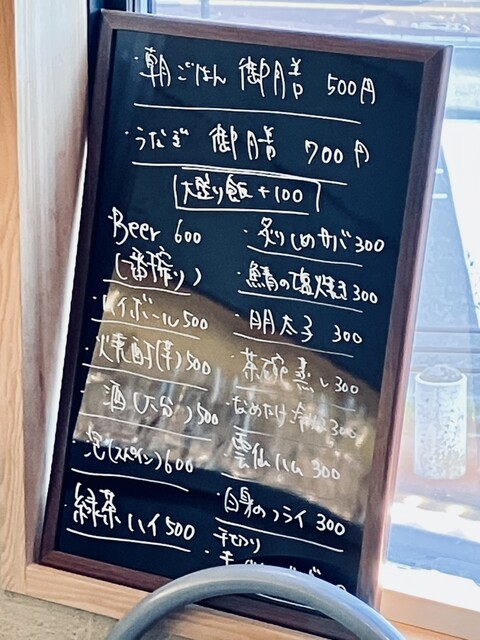 ・朝ごはん 御膳 500円
・うなぎ 御膳 700円
大盛り飯+100
Beer 600
(一番搾り)
・ハイボール 500
・焼酎(芋) 500
・酒(大分) 500
・泡(スペイン) 600
・緑茶ハイ 500
・炙りしめサバ 300
・鯖の塩焼き 300
・明太子 300
・茶碗蒸し 300
・なめたけ
300
・雲仙ハム 300
・白身のフライ 300
手作り